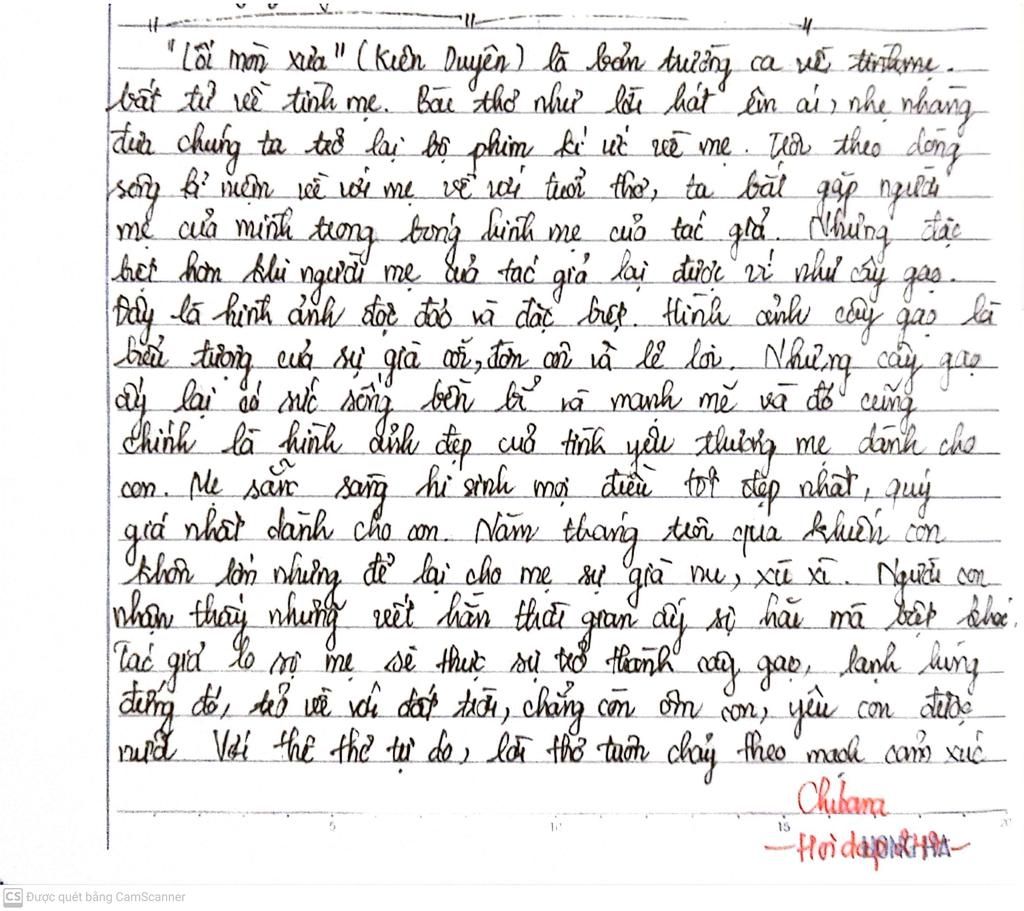 "Lối mòn xưa" (Kiên Duyên) là bản trường ca về tình mẹ.
bất tử về tình mẹ. Bài thơ như lời hát êm ái, nhẹ nhàng
đưa chúng ta trở lại bộ phim kí ức về mẹ. Trôi theo dòng
sông kỉ niệm về với mẹ về với tuổi thơ, ta bắt gặp người
mẹ của mình trong bóng hình mẹ của tác giả. Nhưng đặc
biệt hơn khi người mẹ của tác giả lại được ví như cây gạo.
Đây là hình ảnh độc đáo và đặc biệt. Hình ảnh cây gạo là
biểu tượng của sự già cỗi, đơn côi và lẻ loi. Nhưng cây gạo
ấy lại có sức sống bền bỉ và mạnh mẽ và đó cũng
chính là hình ảnh đẹp của tình yêu thương mẹ dành cho
con. Mẹ sẵn sàng hi sinh mọi điều tốt đẹp nhất, quý
giá nhất dành cho con. Năm tháng trôi qua khiến con
khôn lớn nhưng để lại cho mẹ sự già nu, xù xì. Người con
nhận thấy những vết hằn thời gian ấy sợ hãi mà bật khóc.
Tác giả lo sợ mẹ sẽ thực sự trở thành cây gạo, lạnh lùng
đứng đó, trở về với đất trời, chẳng còn ôm con, yêu con được
nữa. Với thể thơ tự do, lời thơ tuôn chảy theo mạch cảm xúc
5 10 15 20
Chibana
HONG HA
CS Được quét bằng CamScanner